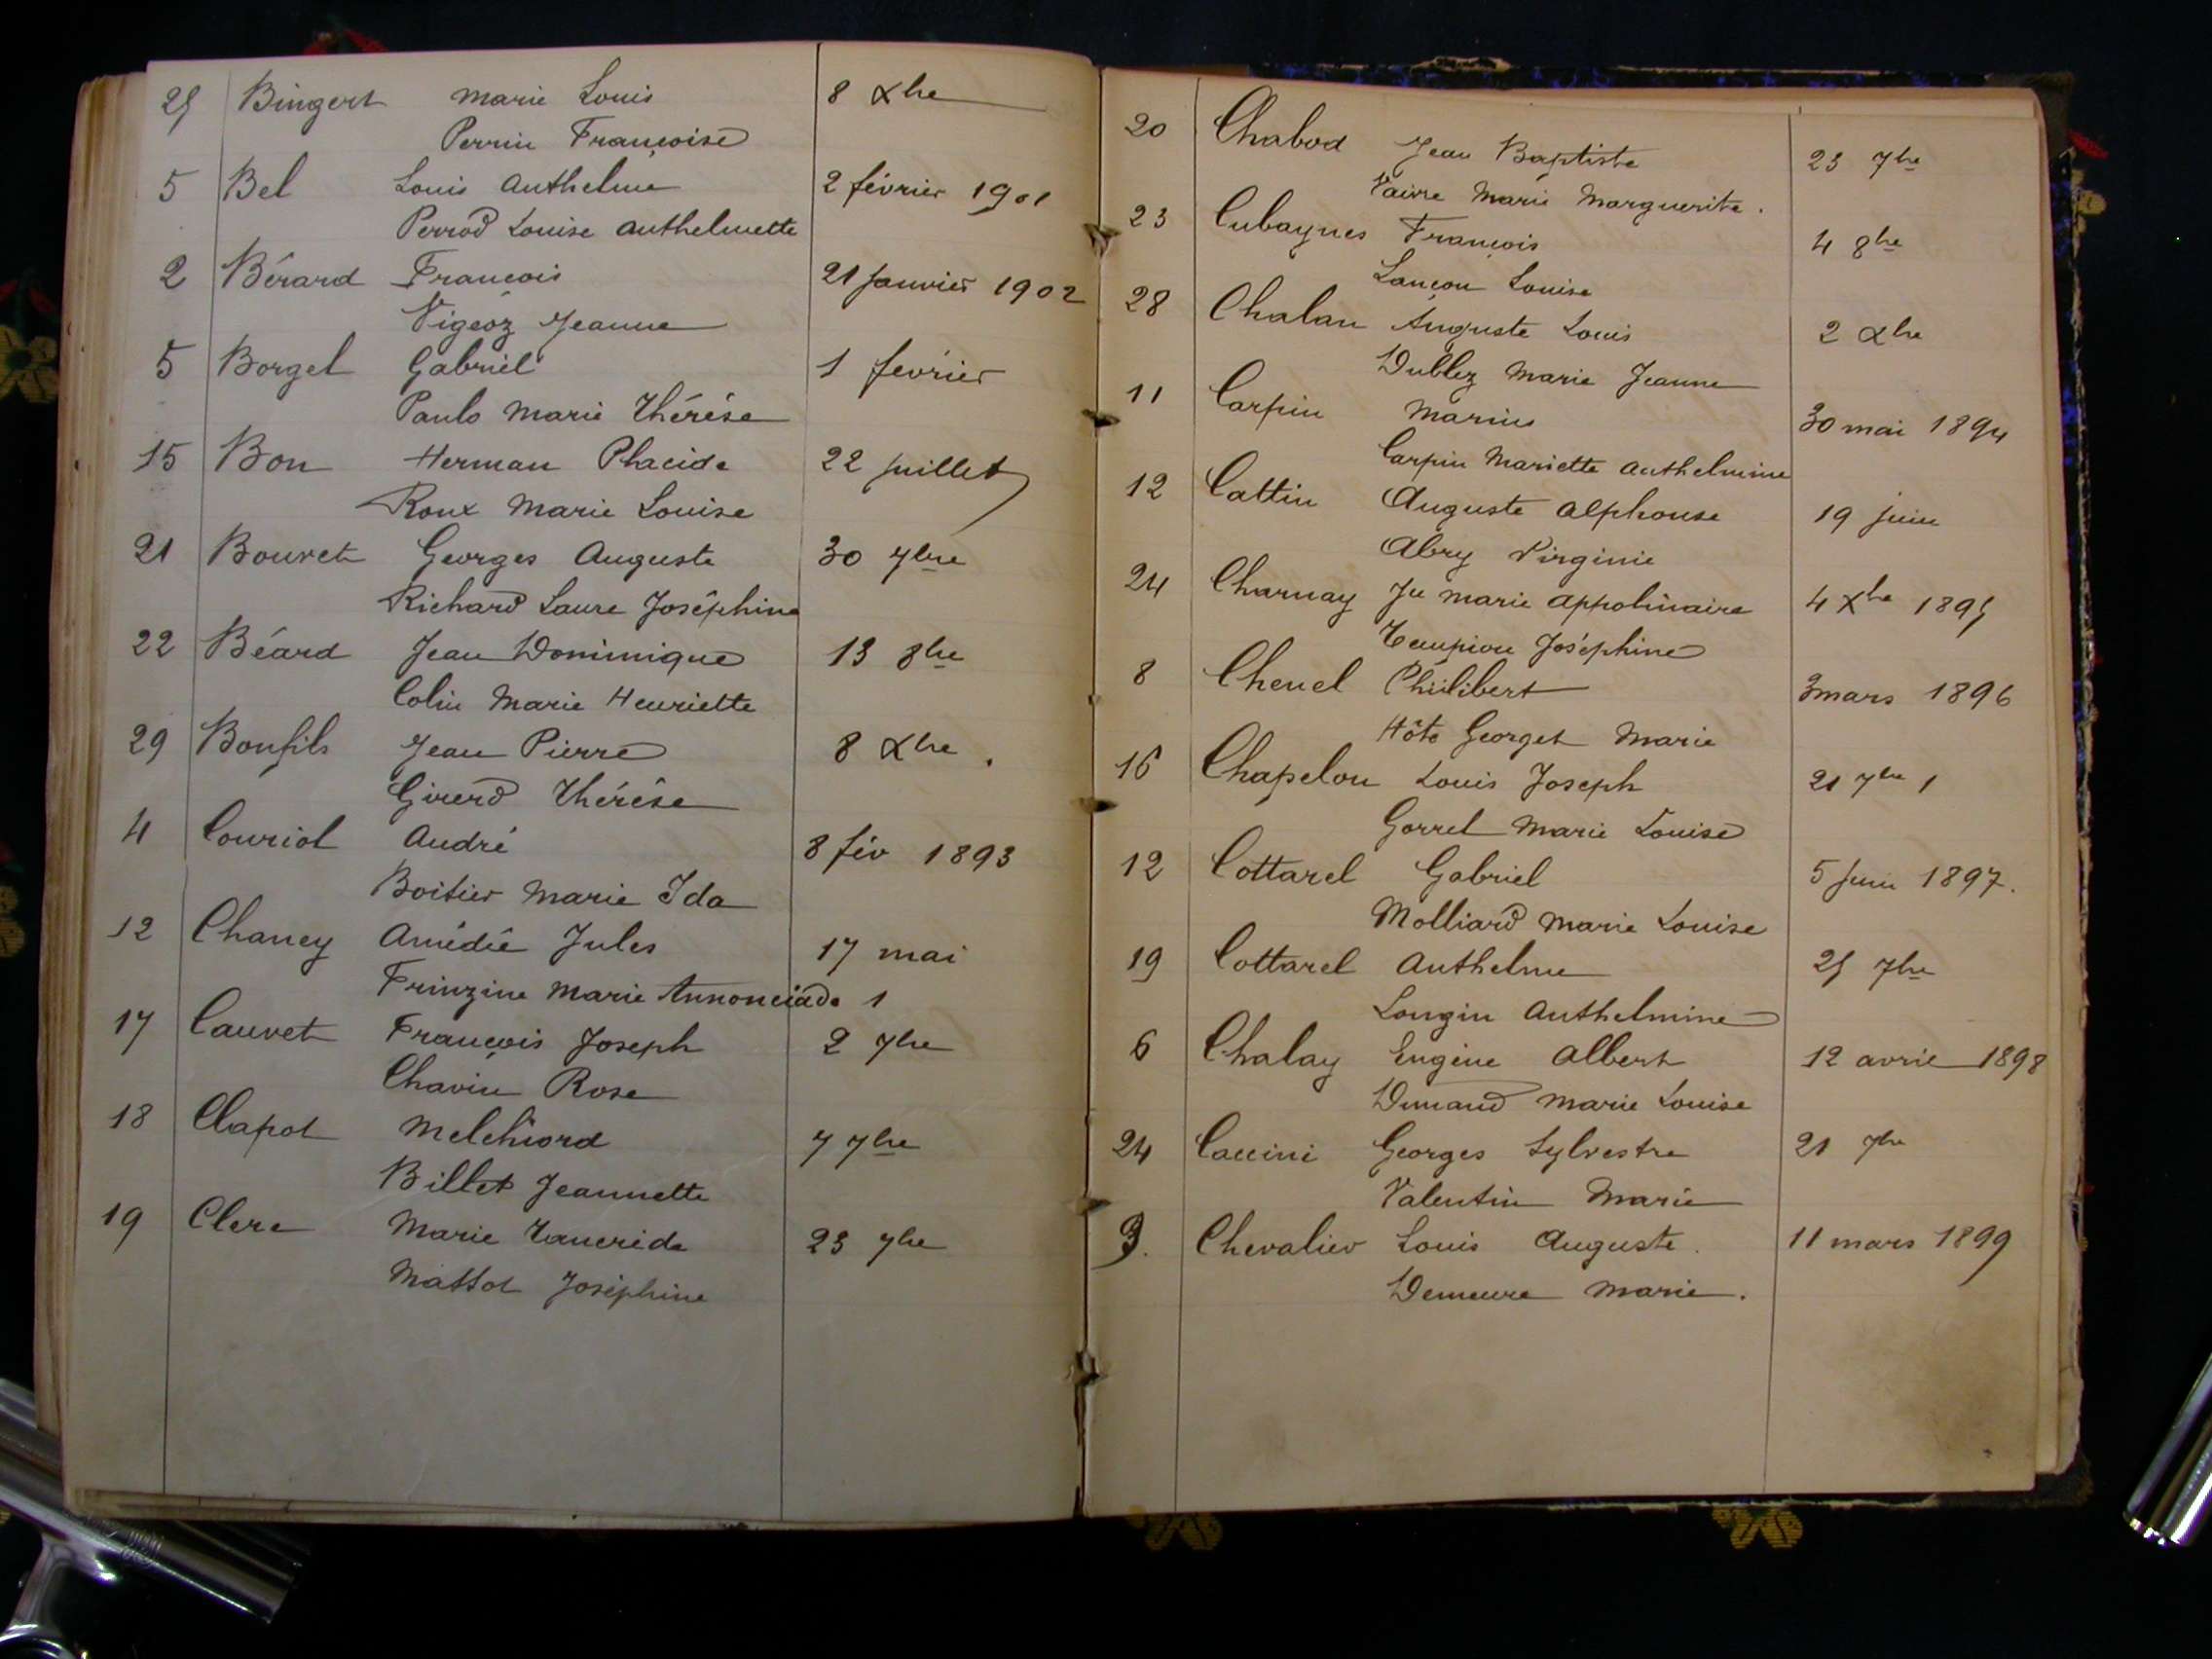 25 Bingert Marie Louis 8 Xbre
Perrin Françoise
5 Bel Louis Anthelme 2 février 1901
Perrod Louise Anthelmette
2 Bérard François 21 Janvier 1902
Vigeoz Jeanne
5 Borgel Gabriel 1 février
Paulo Marie Thérèse
15 Bon Herman Placide 22 Juillet
Roux Marie Louise
21 Bouvet Georges Auguste 30 7bre
Richard Laure Joséphine
22 Béard Jean Dominique 13 8bre
Colin Marie Henriette
29 Bonfils Jean Pierre 8 Xbre .
Girerd Thérèse
4 Couriol André 8 fév 1893
Boitier Marie Ida
12 Chaney Amédée Jules 17 mai
Frinzine Marie Annonciade 1
17 Cauvet François Joseph 2 7bre
Chavin Rose
18 Clapot Melchiord 7 7bre
Billet Jeannette
19 Clerc Marie Tancride 23 7bre
Mattot Joséphine
20 Chabod Jean Baptiste 23 7bre
Vaivre Marie Marguerite .
23 Cubaynes François 4 8bre
Lançon Louise
28 Chalan Auguste Louis 2 Xbre
Dublez Marie Jeanne
11 Carpin Marius 30 mai 1894
Carpin Mariette Anthelmine
12 Cattin Auguste Alphonse 19 juin
Abry Virginie
24 Charnay Jn Marie Appolinaire 4 Xbre 1895
Tempion Joséphine
8 Chenel Philibert 3 mars 1896
Hôte Georget Marie
16 Chapelon Louis Joseph 21 7bre 1
Gorrel Marie Louise
12 Cottarel Gabriel 5 Juin 1897.
Molliard Marie Louise
19 Cottarel Anthelme 25 7bre
Longin Anthelmine
6 Chalay Eugène Albert 12 avril 1898
Dunand Marie Louise
24 Caccini Georges Sylvestre 21 7bre
Valentin Marie
3. Chevalier Louis Auguste . 11 mars 1899
Demeure Marie .